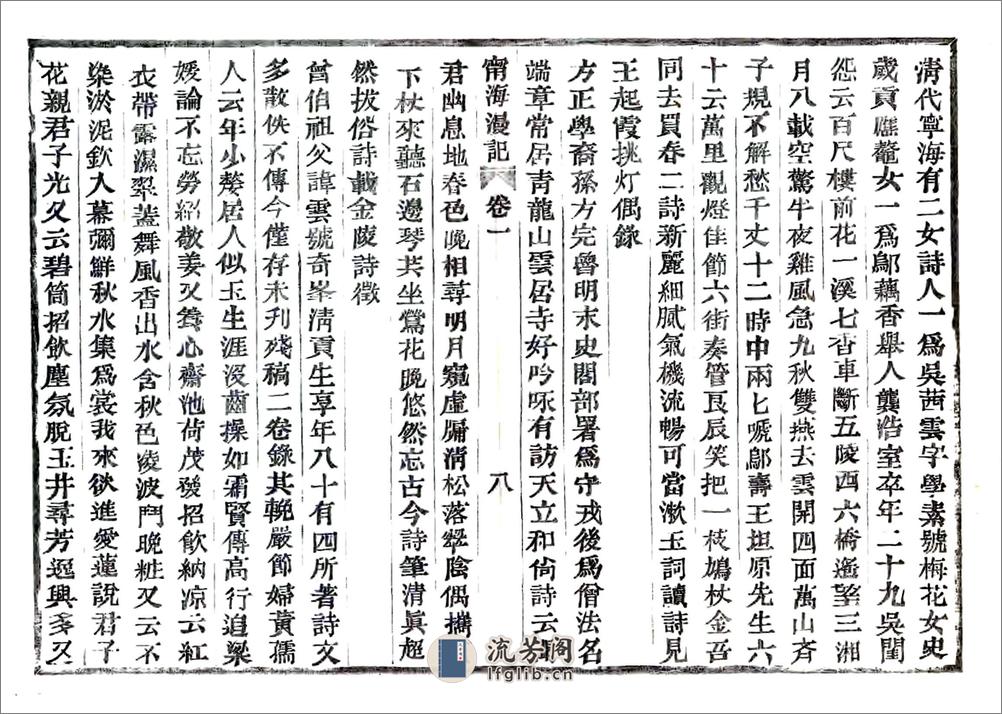 清代寧海有二女詩人一爲吳茜雲字學素號梅花女史
歲貢應鼇女一爲鄔藕香舉人龔浩室卒年二十九吳閨
怨云百尺樓前花一溪七香車斷五陵西六橋遙望三湘
月八載空驚半夜雞風急九秋雙燕去雲開四面萬山齊
子規不解愁千丈十二時中兩匕嗁鄔壽王坦原先生六
十云萬里觀燈佳節六街奏管良辰笑把一枝鳩杖金吾
同去買春二詩新麗細膩氣機流暢可當漱玉詞讀詩見
王起霞挑灯偶錄
方正學裔孫方完魯明末史閣部署爲守戎後爲僧法名
端章常居青龍山雲居寺好吟咏有訪天立和尙詩云
甯海漫記 卷一 八
君幽息地春色晚相尋明月窺虛牖清松落翠陰偶攜
下杖來聽石邊琴共坐鶯花晚悠然忘古今詩筆清眞超
然拔俗詩載金陵詩徵
曾伯祖父諱雲號奇峯淸貢生享年八十有四所著詩文
多散佚不傳今僅存未刋殘稿二卷錄其輓嚴節婦黃孺
人云年少嫠居人似玉生涯沒齒操如霜賢傳高行追梁
媛論不忘勞紹敬姜又養心齋池荷茂發招飮納凉云紅
衣帶露濕翠蓋舞風香出水含秋色凌波鬥晚粧又云不
染淤泥欽入幕彌鮮秋水集爲裳我來欲進愛蓮說君子
花親君子光又云碧筒招飮塵氛脫玉井尋芳逸興多又
流芳阁
lfglib.cn